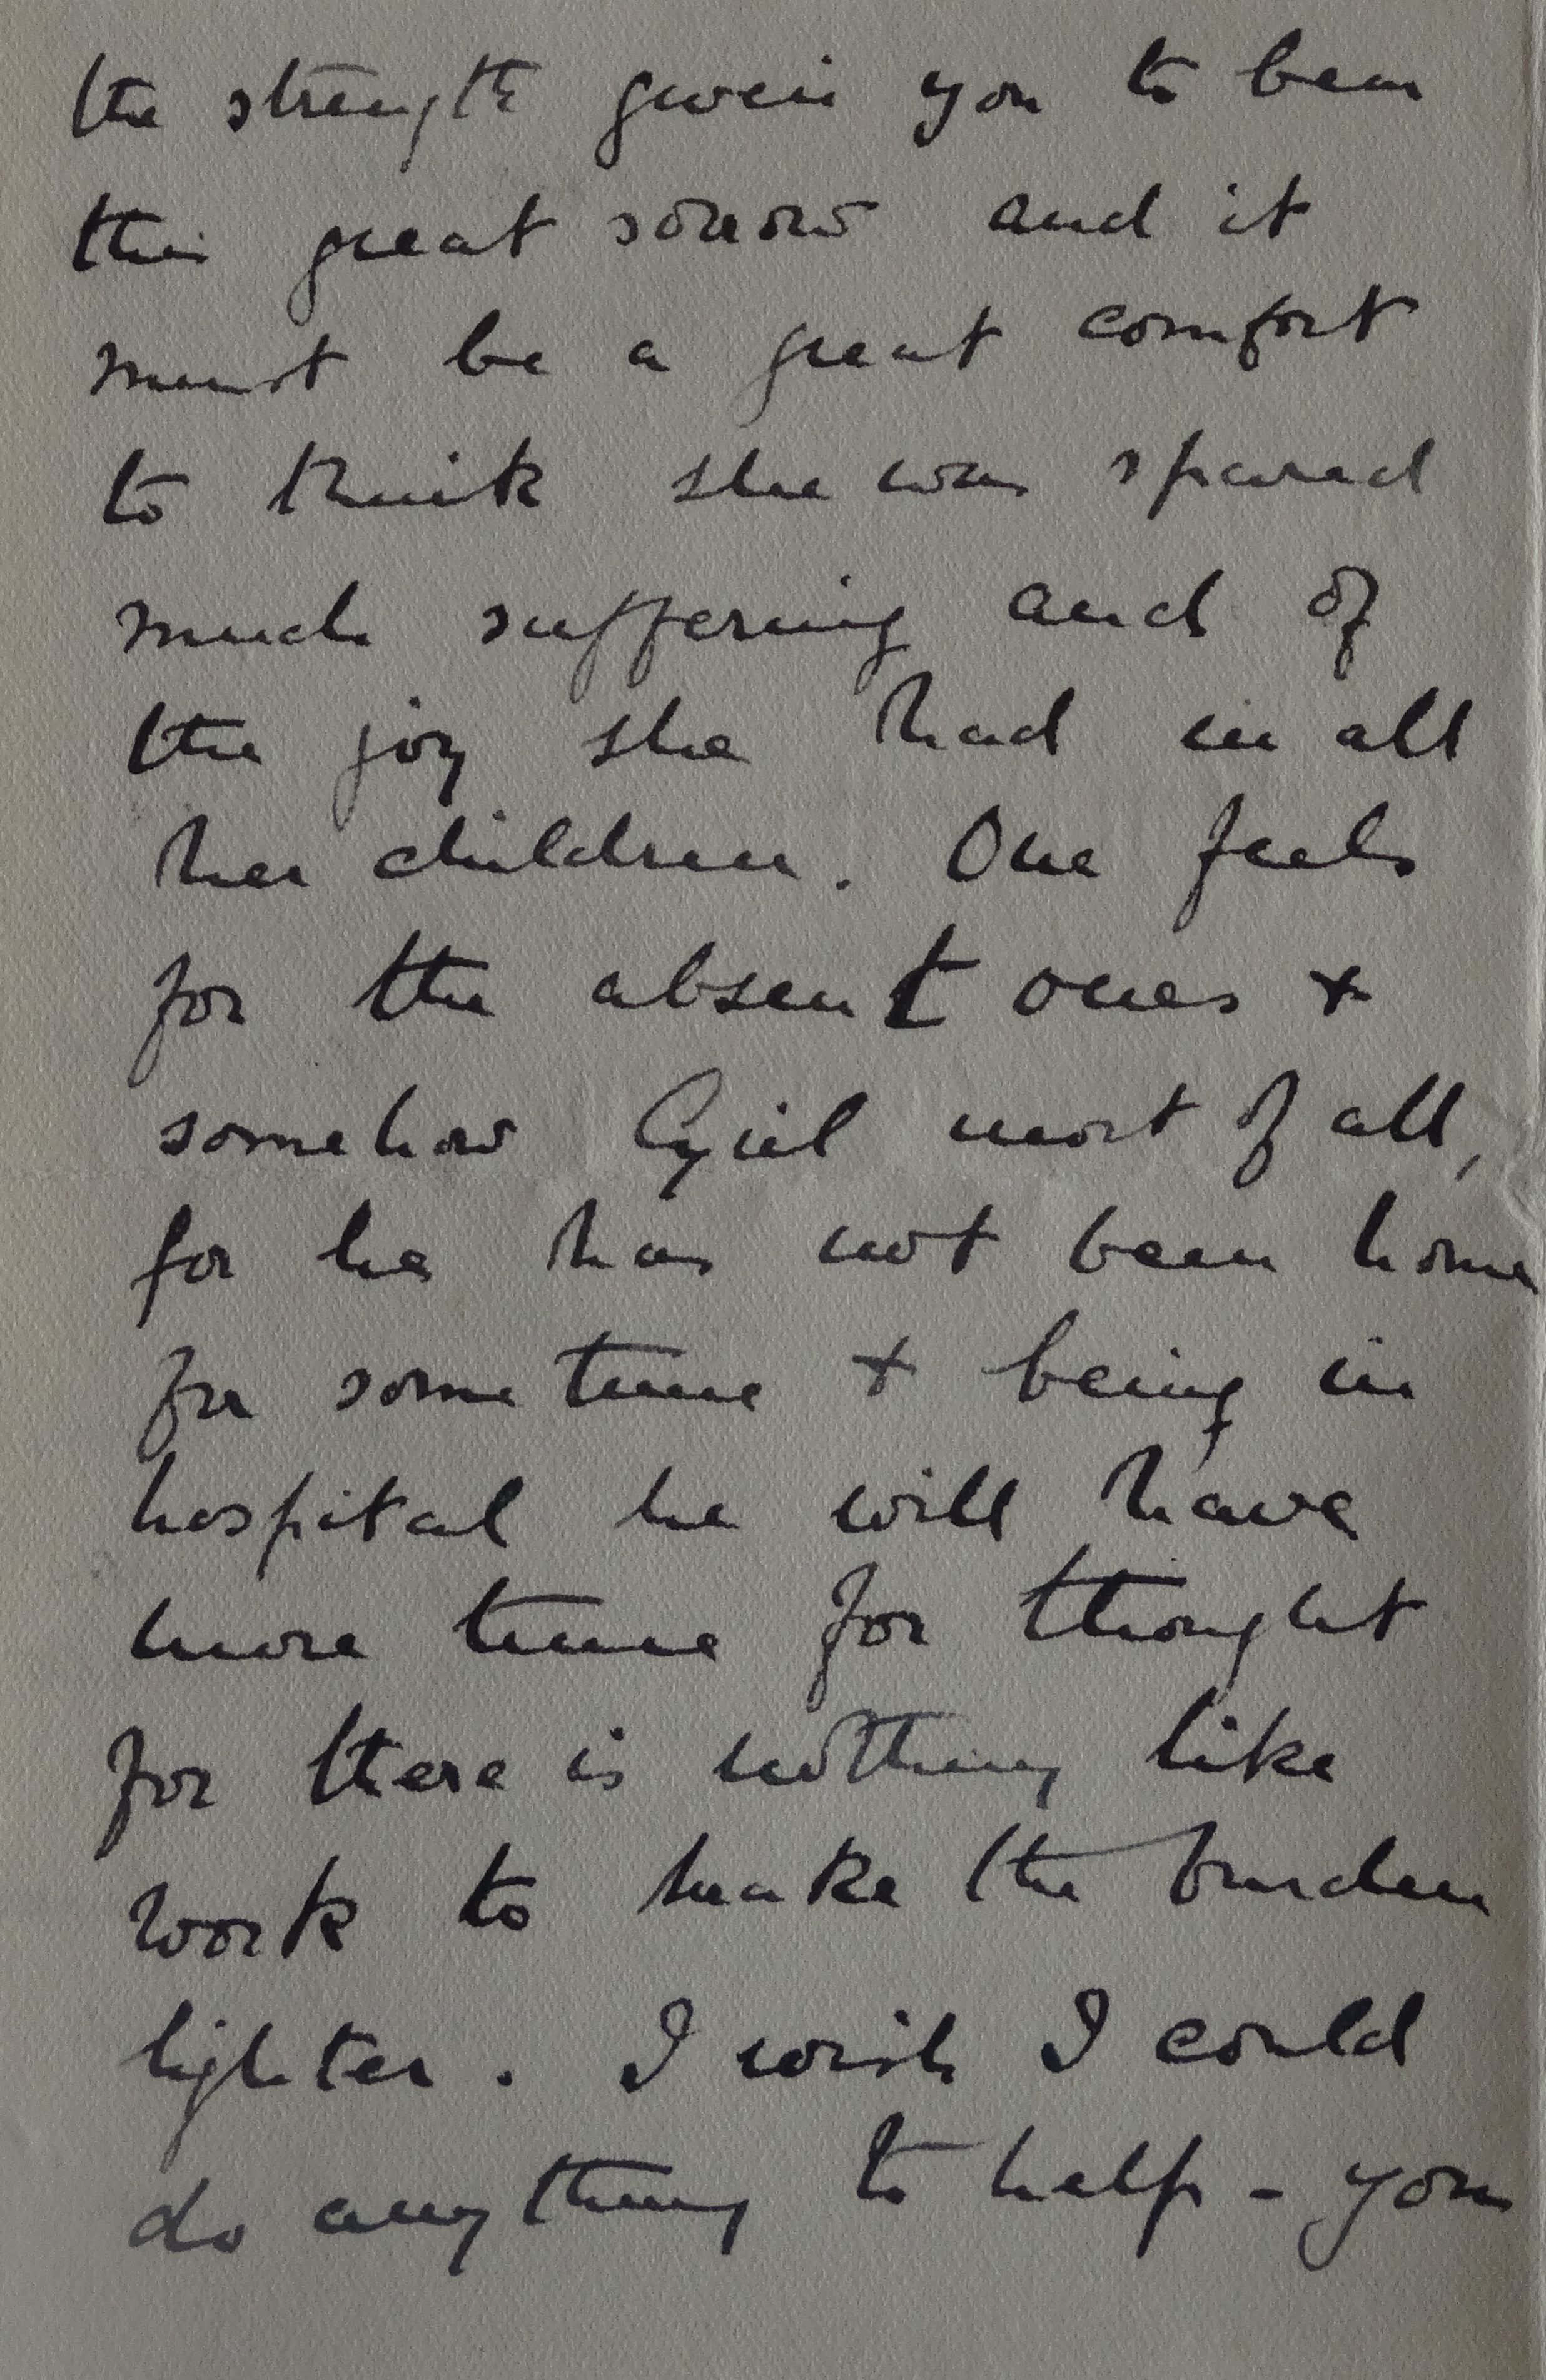 the strength given you to bear
this great sorrow and it
must be a great comfort
to think she was spared
much suffering and of
the joy she had in all
her children. One feels
for the absent ones +
somehow Cyril most of all,
for he has not been home
for some time + being in
hospital he will have
more time for thought
for there is nothing like
work to make the burden
lighter. I wish I could
do anything to help - your